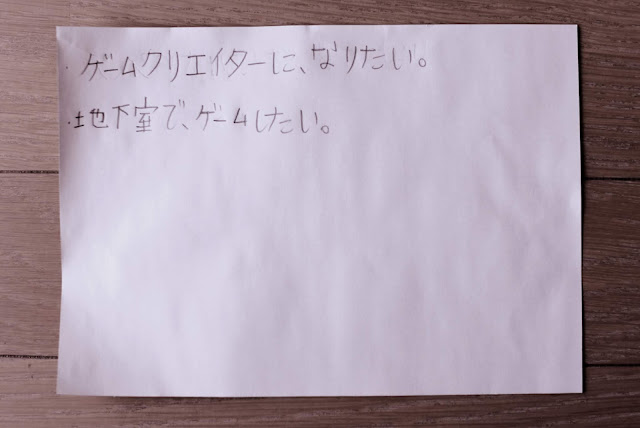 ・ゲームクリエイターに、なりたい。
・地下室で、ゲームしたい。